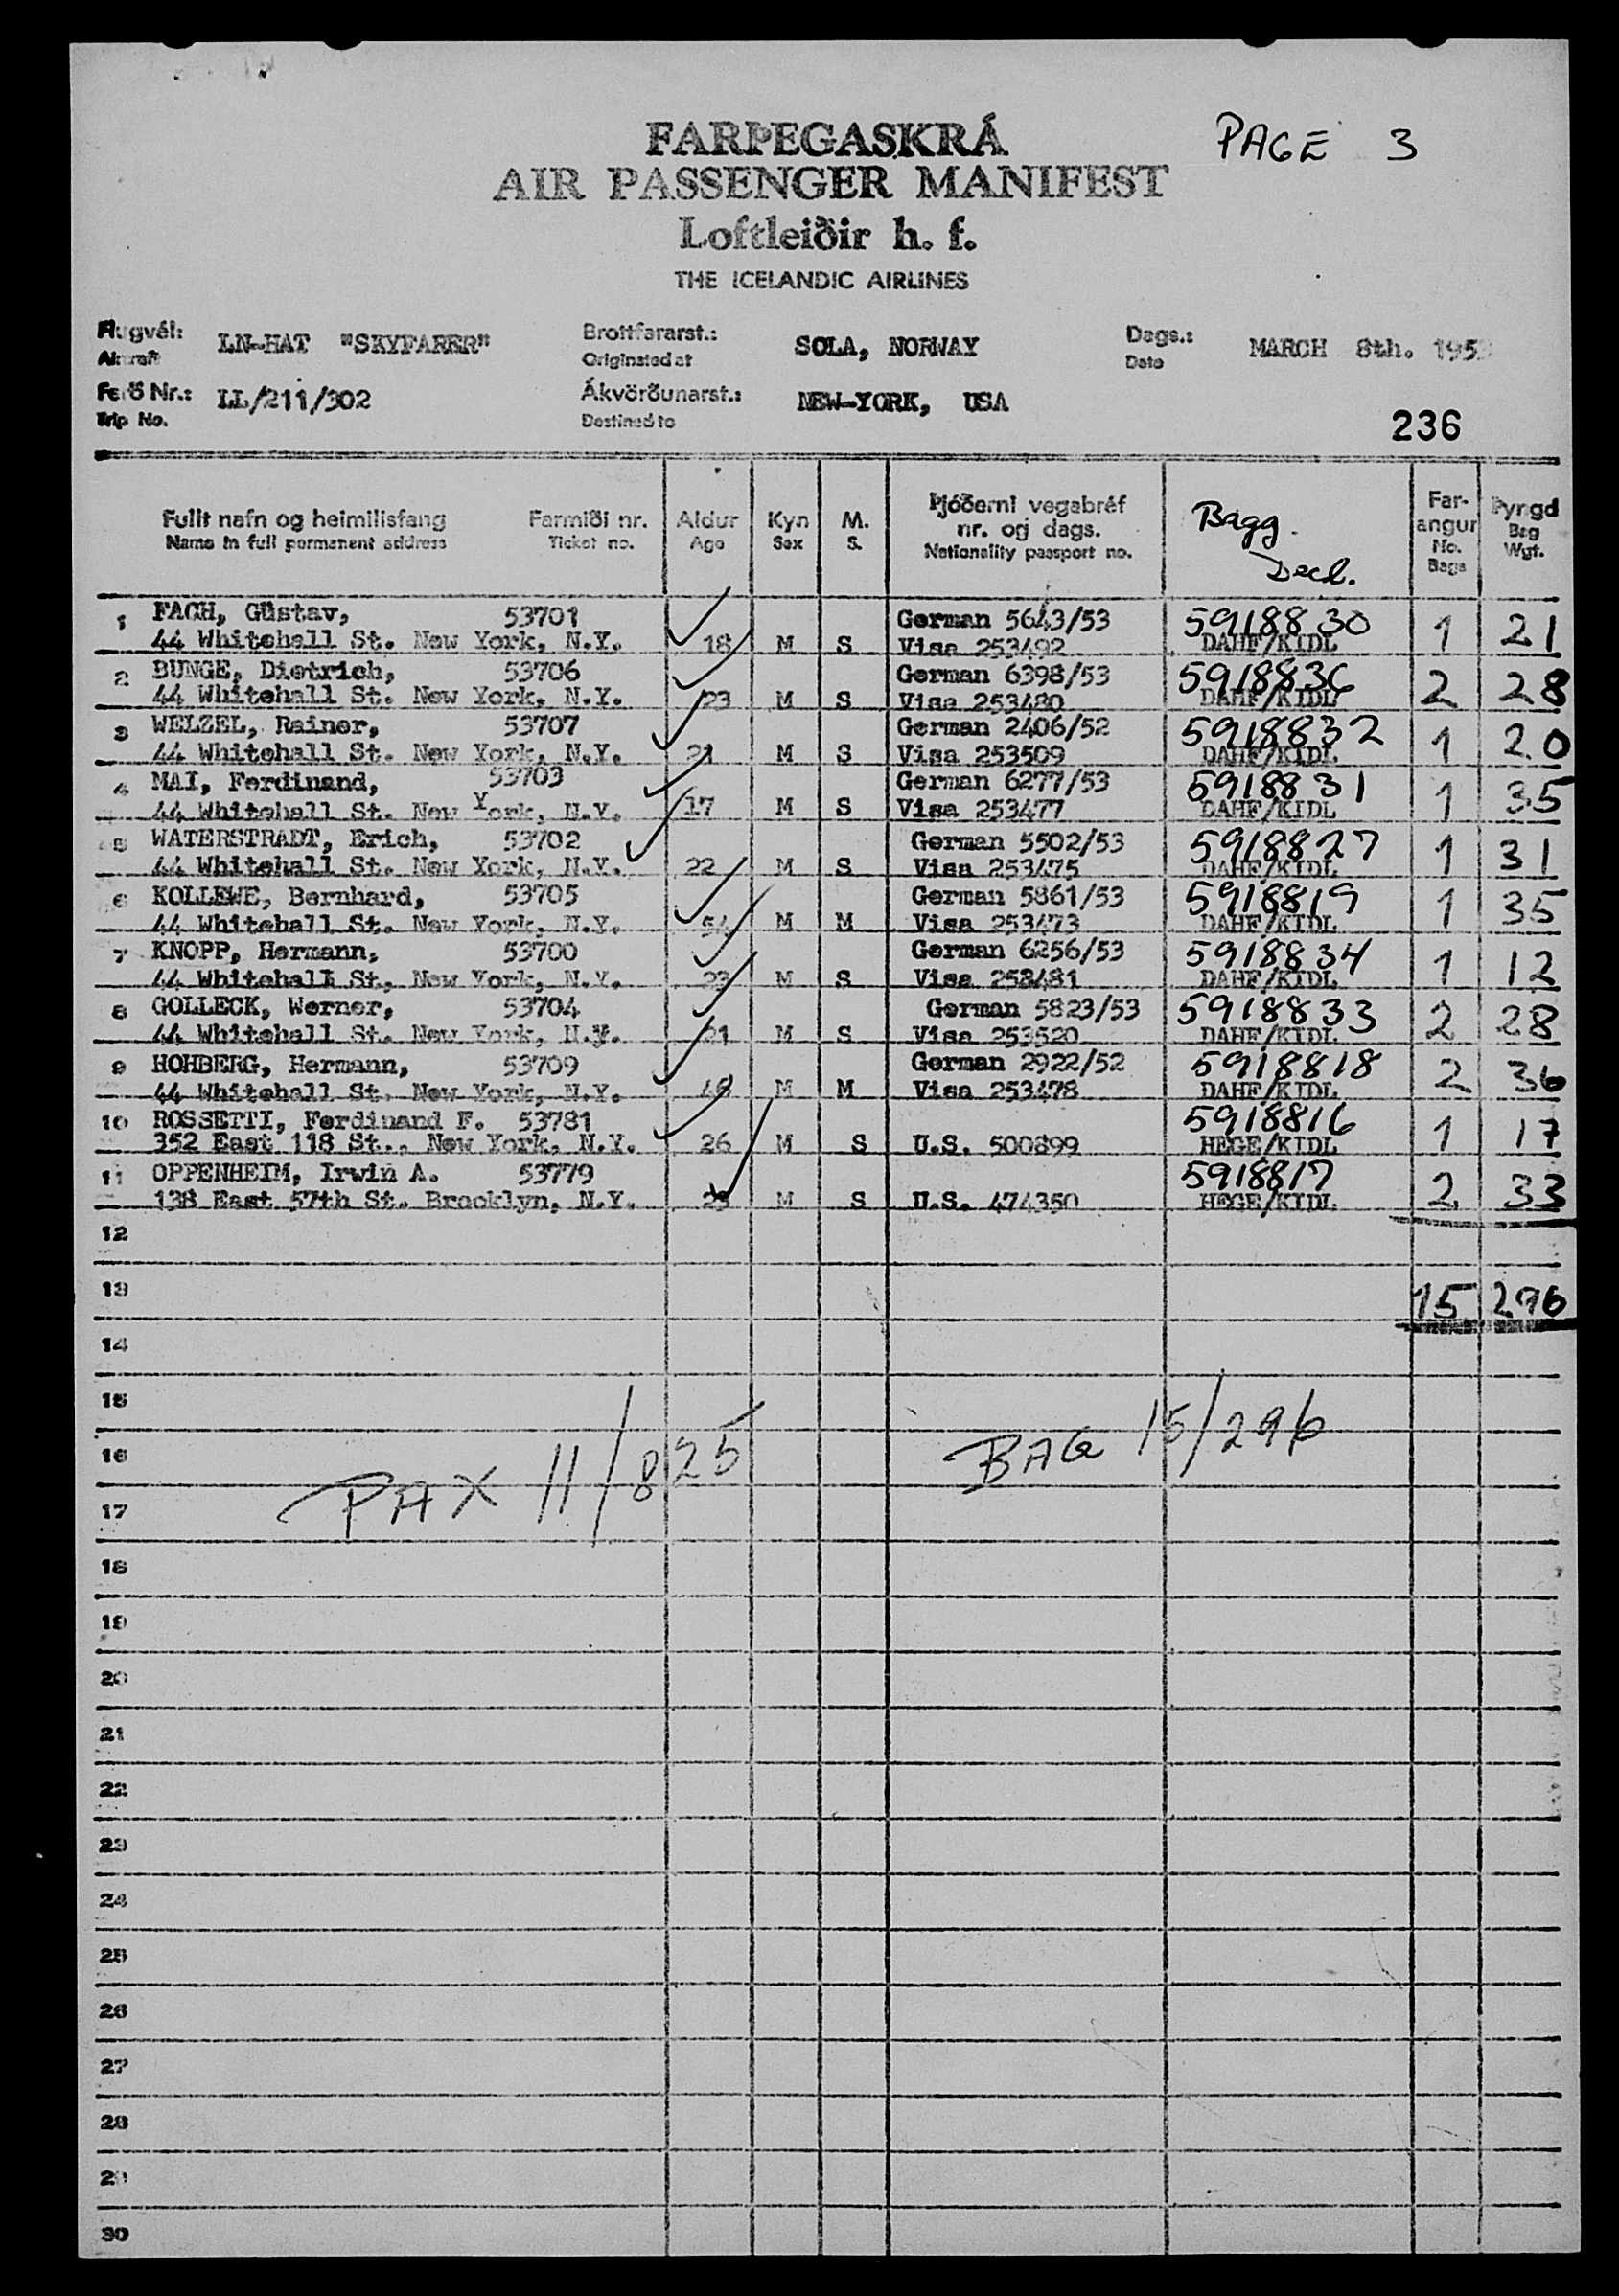 FARÞEGASKRÁ
PAGE 3
AIR PASSENGER MANIFEST
Loftleiðir h. f.
THE ICELANDIC AIRLINES
Flugvél: LN-HAT "SKYFARER" Brottfararst.: SOLA, NORWAY Dags.: MARCH 8th. 195
Aircraft Originated at Date
Ferð Nr.: LL/211/302 Ákvörðunarst.: NEW-YORK, USA
Trip No. Destined to
236
Fullt nafn og heimilisfang Farmiði nr. Aldur Kyn M. Þjóðerni vegabréf nr. og dags. Bagg. Decl. Far-angur Þyngd
Name in full permanent address Ticket no. Age Sex S. Nationality passport no. No. Bags Bag Wgt.
1 FACH, Güstav, 53701 German 5643/53 5918830
44 Whitehall St. New York, N.Y. 18 M S Visa 253492 DAHF/KIDL 1 21
2 BUNGE, Dietrich, 53706 German 6398/53 5918836
44 Whitehall St. New York, N.Y. 23 M S Visa 253480 DAHF/KIDL 2 28
3 WELZEL, Rainer, 53707 German 2406/52 5918832
44 Whitehall St. New York, N.Y. 21 M S Visa 253509 DAHF/KIDL 1 20
4 MAI, Ferdinand, 53703 German 6277/53 5918831
44 Whitehall St. New York, N.Y. 17 M S Visa 253477 DAHF/KIDL 1 35
5 WATERSTRADT, Erich, 53702 German 5502/53 5918827
44 Whitehall St. New York, N.Y. 22 M S Visa 253475 DAHF/KIDL 1 31
6 KOLLEWE, Bernhard, 53705 German 5861/53 5918819
44 Whitehall St. New York, N.Y. 54 M M Visa 253473 DAHF/KIDL 1 35
7 KNOPP, Hermann, 53700 German 6256/53 5918834
44 Whitehall St, New York, N.Y. 23 M S Visa 253481 DAHF/KIDL 1 12
8 GOLLECK, Werner, 53704 German 5823/53 5918833
44 Whitehall St. New York, N.Y. 21 M S Visa 253520 DAHF/KIDL 2 28
9 HOHBERG, Hermann, 53709 German 2922/52 5918818
44 Whitehall St. New York, N.Y. M M Visa 253478 DAHF/KIDL 2 36
10 ROSSETTI, Ferdinand F. 53781 5918816
352 East 118 St., New York, N.Y. 26 M S U.S. 500899 HEGE/KIDL 1 17
11 OPPENHEIM, Irwin A. 53779 5918817
138 East 57th St. Brooklyn, N.Y. M S U.S. 474350 HEGE/KIDL 2 33
12
13 15 296
14
15
16 PAX 11/825 BAG 15/296
17
18
19
20
21
22
23
24
25
26
27
28
29
30